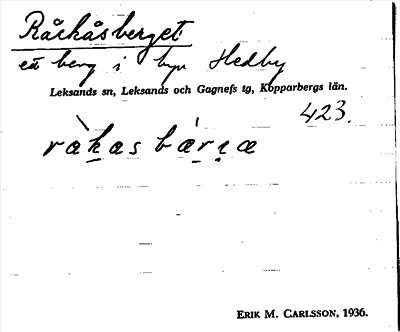 Råckåsberget
ett berg i byn Hedby
Leksands sn, Leksands och Gagnefs tg, Kopparbergs län.
423.
ràk̲as bǽr̲ṇæ
ERIK M. CARLSSON, 1936.